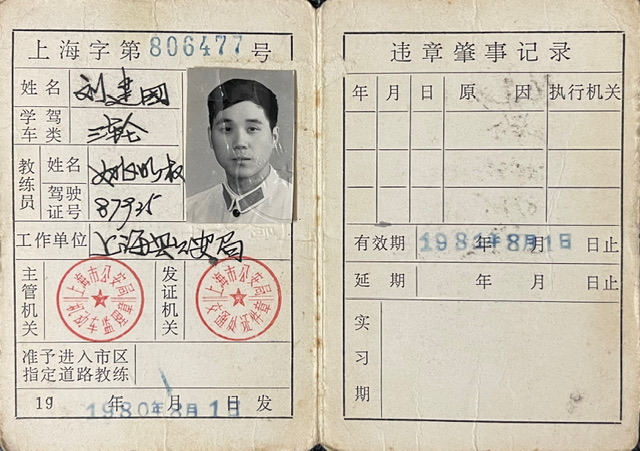 上海字第806477号
姓名 刘建国
学驾车类 三轮
教练员 姓名
驾驶证号 87925
工作单位 上海县公安局
主管机关
上海市公安局
发证机关
上海市公安局
准予进入市区
指定道路教练
19 年 月 日发
1980年8月1日
违章肇事记录
年 月 日 原因 执行机关
有效期 年 月 日止
1981年8月1日
延期 年 月 日止
实习期